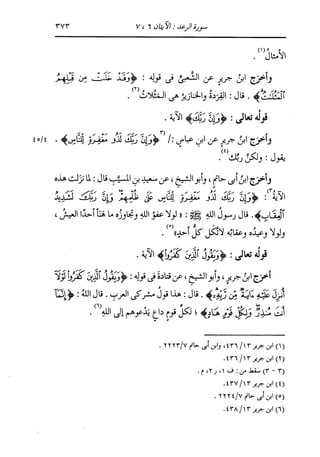 سورة الرعد : الآيتان ٦ ، ٧
٣٧٣
الأمثالُ (١) .
وأخرَج ابنُ جريرٍ عن الشَّعبيِّ في قولِه : ﴿وَقَدْ خَلَتْ مِن قَبْلِهِمُ
الْمَثُلَاتُ﴾ . قال : القِرَدةُ والخنازيرُ هى المَثُلاتُ (٢) .
قولُه تعالى : ﴿وَإِنَّ رَبَّكَ﴾ الآية .
وأخرَج ابنُ جريرٍ عن ابنِ عباسٍ : / (٣) ﴿وَإِنَّ رَبَّكَ لَذُو مَغْفِرَةٍ لِّلنَّاسِ﴾ .
٤٥/٤
يقولُ : ولكنَّ ربَّك (٤) .
وأخرَج ابنُ أبى حاتمٍ ، وأبو الشيخِ ، عن سعيدِ بنِ المسيَّبِ قال : لما نزَلت هذه
الآيةُ (٣) : ﴿وَإِنَّ رَبَّكَ لَذُو مَغْفِرَةٍ لِّلنَّاسِ عَلَى ظُلْمِهِمْ وَإِنَّ رَبَّكَ لَشَدِيدُ
الْعِقَابِ﴾ . قال رسولُ اللهِ ﷺ : «لولا عفوُ اللهِ وتجاوزُه ما هَنَأ أحدًا العيشُ ،
ولولا وعيدُه وعقابُه لاتَّكل كلُّ أحدٍ» (٥) .
قولُه تعالى : ﴿وَيَقُولُ الَّذِينَ كَفَرُوا﴾ الآية .
أخرَج ابنُ جريرٍ ، وأبو الشيخِ ، عن قتادةَ فى قولِه : ﴿وَيَقُولُ الَّذِينَ كَفَرُوا لَوْلَا
أُنزِلَ عَلَيْهِ ءَايَةٌ مِّن رَّبِّهِ﴾ . قال : هذا قولُ مشركى العربِ . قال اللهُ : ﴿إِنَّمَا
أَنتَ مُنذِرٌ وَلِكُلِّ قَوْمٍ هَادٍ﴾ : لكلِّ قومٍ داعٍ يَدْعوهم إلى اللهِ (٦) .
(١) ابن جرير ١٣/ ٤٣٦، وابن أبى حاتم ٧/ ٢٢٢٣ .
(٢) ابن جرير ١٣/ ٤٣٦ .
(٣ - ٣) سقط من : ف ١، ر ٢، م .
(٤) ابن جرير ١٣/ ٤٣٧ .
(٥) ابن أبى حاتم ٧/ ٢٢٢٤ .
(٦) ابن جرير ١٣/ ٤٣٨ .